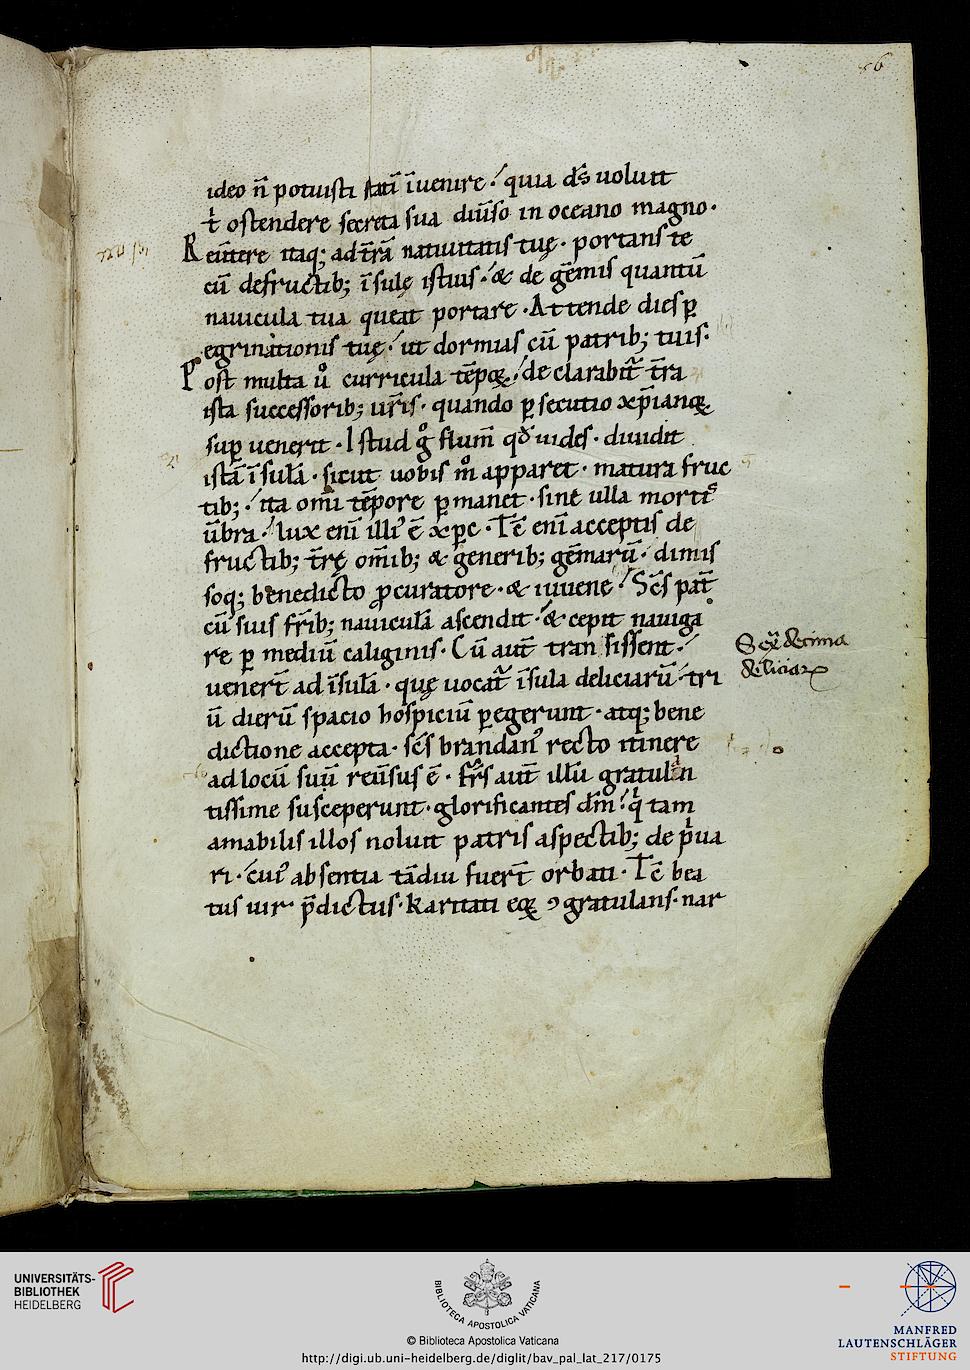 56
ideo n̄ potuisti statī īuenire. quia d̄s uoluit
t̍ ostendere secreta sua diu̅so in oceano magno.
Reu̅tere itaq; ad t̄rā natiuitatis tuę. portans te
cū de fructib; īsulę istius. & de gēmis quantū
nauicula tua queat portare. Attende dies ꝑ
egrinationis tuę. ut dormias cū patrib; tuis.
Post multa u̍o curricula tēpoꝝ. declarabit᷑ t̄ra
ista successorib; ur̄is. quando ꝑsecutio xp̄ianoꝝ
suꝑuenerit. Istud g̊ flum̄ qd̄ uides. diuidit
istā īsulā. sicut uobis m̊ apparet. matura fruc
tib; ita omī tēpore ꝑmanet. sine ulla mortis
ūbra. lux enī illiꝰ ē xp̄c. Tc̄ enī acceptis de
fructib; t̄rę om̄ib; & generib; gēmarū. dimis
soq; benedicto ꝓcuratore. & iuuene. Sc̄s pat̄
cū suis fr̄ib; nauiculā ascendit. & cepit nauiga
re ꝑ mediū caliginis. Cū aut̄ transissent.
uener̄t ad īsulā. quę uocat᷑ īsula deliciarū. tri
ū dierū spacio hospiciū ꝑegerunt. atq; bene
dictione accepta. sc̄s brandanꝰ recto itinere
ad locū suū reu̅sus ē. fr̄s aut̄ illū gratulan
tissime susceperunt. glorificantes dm̄. qⁱ tam
amabilis illos noluit patris aspectib; de pⁱua
ri. cuiꝰ absentia tādiu fuer̄t orbati. Tc̄ bea
tus uir p̄dictus. karitati eoꝝ ꝯgratulans. nar
Sexdecima
deliciaꝝ
UNIVERSITÄTS-
BIBLIOTHEK
HEIDELBERG
BIBLIOTECA APOSTOLICA VATICANA
© Biblioteca Apostolica Vaticana
http://digi.ub.uni-heidelberg.de/diglit/bav_pal_lat_217/0175
MANFRED
LAUTENSCHLÄGER
STIFTUNG